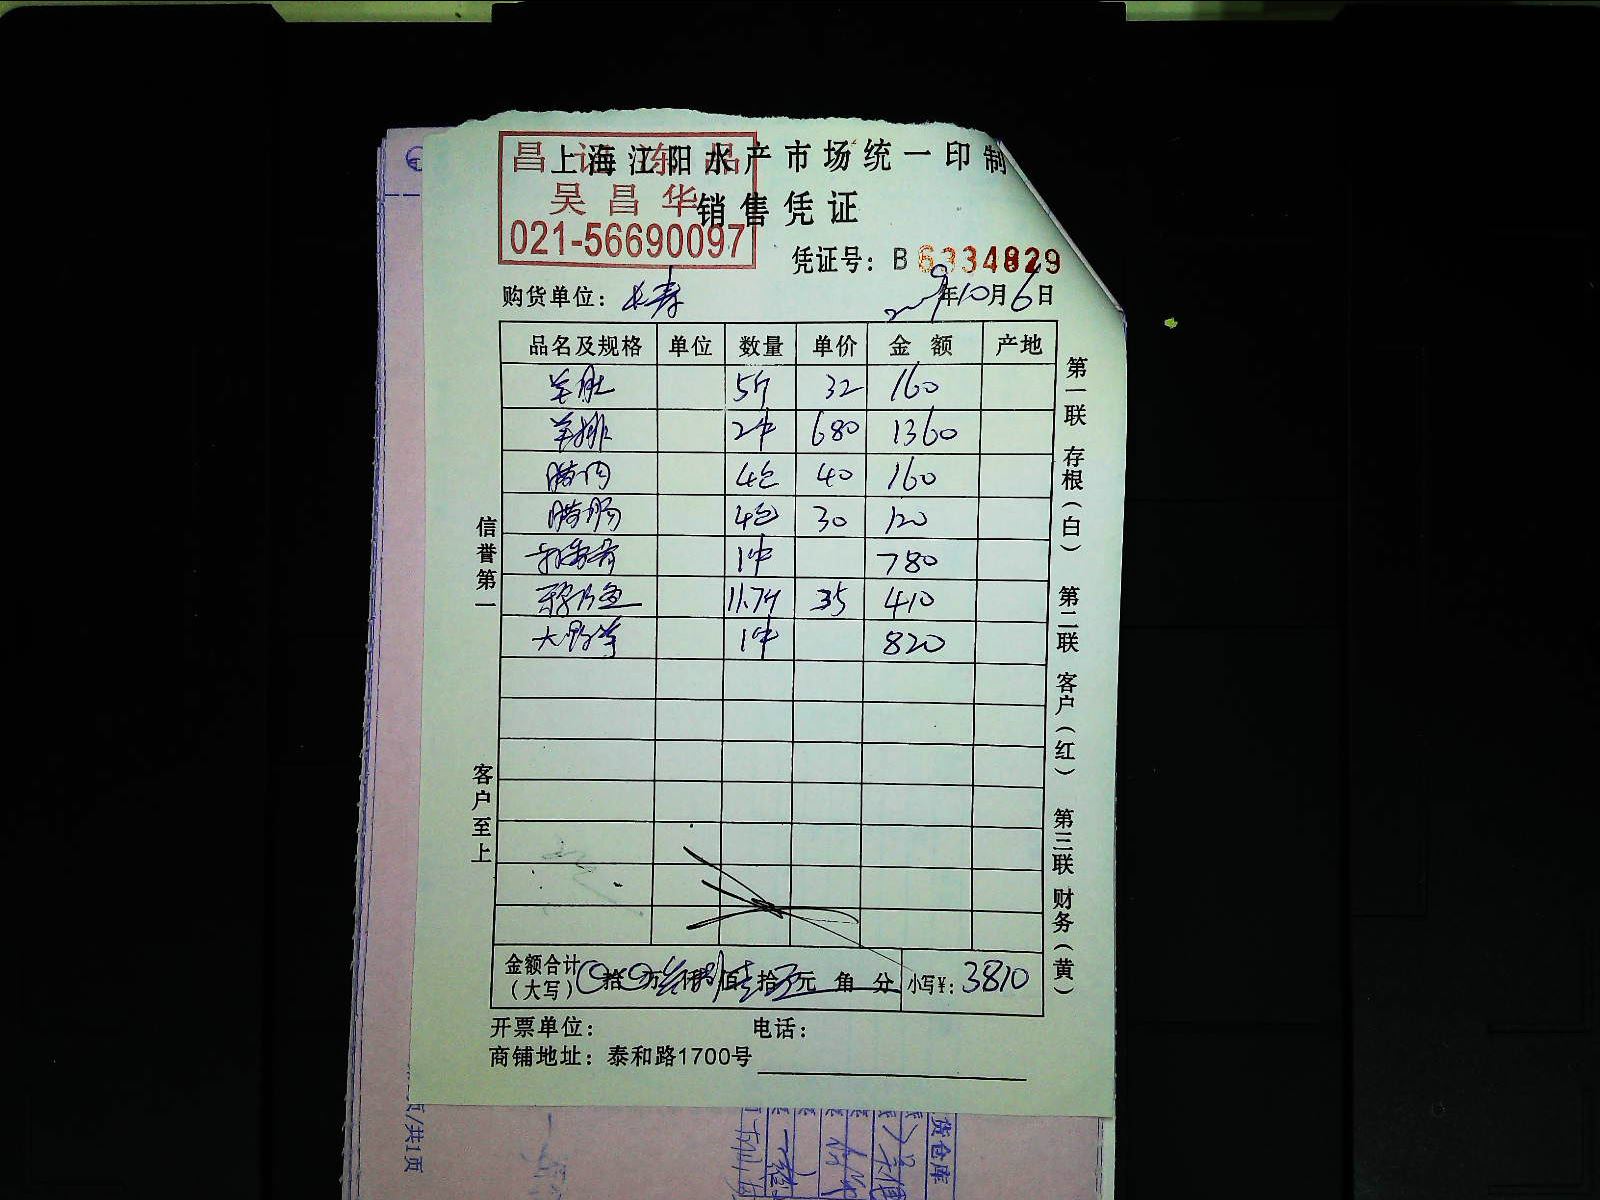 上海江阳水产市场统一印制
昌 冻品
吴昌华
销售凭证
021-56690097
凭证号：B 6334829
购货单位：长寿 2009年10月6日
品名及规格 单位 数量 单价 金额 产地
羊肚 5斤 32 160
羊排 2件 680 1360
腊肉 4包 40 160
腊肠 4包 30 120
1件 780
11.7斤 35 410
1件 820
信誉第一
客户至上
第一联 存根（白） 第二联 客户（红） 第三联 财务（黄）
金额合计（大写） 拾 万叁仟捌佰壹拾元 角 分 小写¥：3810
开票单位： 电话：
商铺地址：泰和路1700号
页/共1页
货仓库